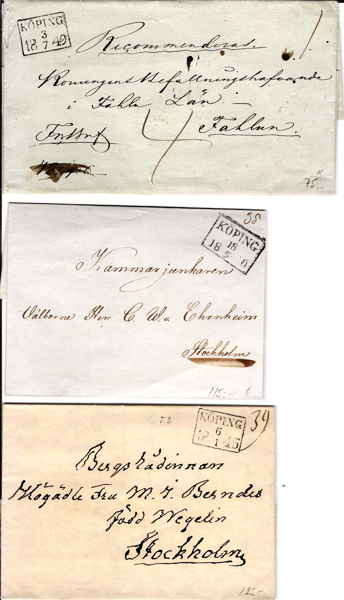 KÖPING
3
18 7 49
Recommenderas.
Konungens Befallningshafvande
i Fahle Län
Fahlun.
4
75
38
KÖPING
18
Kammarjunkaren
Välborne Herr C. W. v. Ehrnheim
Stockholm
115.-
KÖPING
6
18 1 45
39
Bergsrådinnan
Högädle Fru M. r. Berndes
född Wegelin
Stockholm
125.-